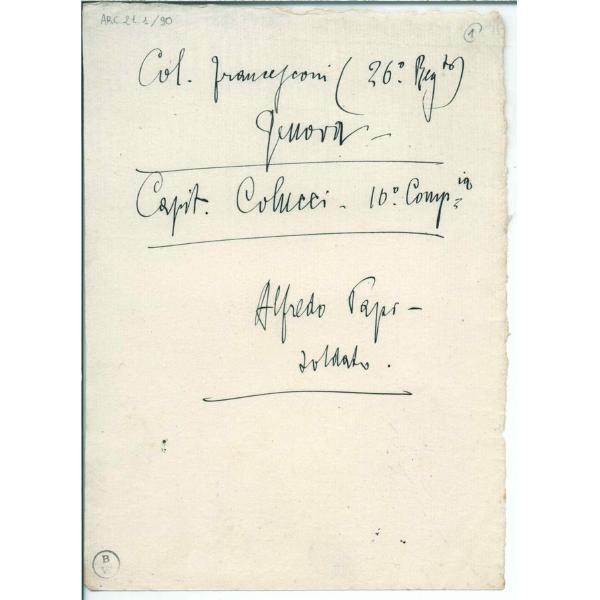 ARC 21 1/90
1
Col. Francesconi (26º. Reg.to)
Genova -
Capit. Colucci - 10º. Comp.ia
Alfredo Papi -
soldato.
B